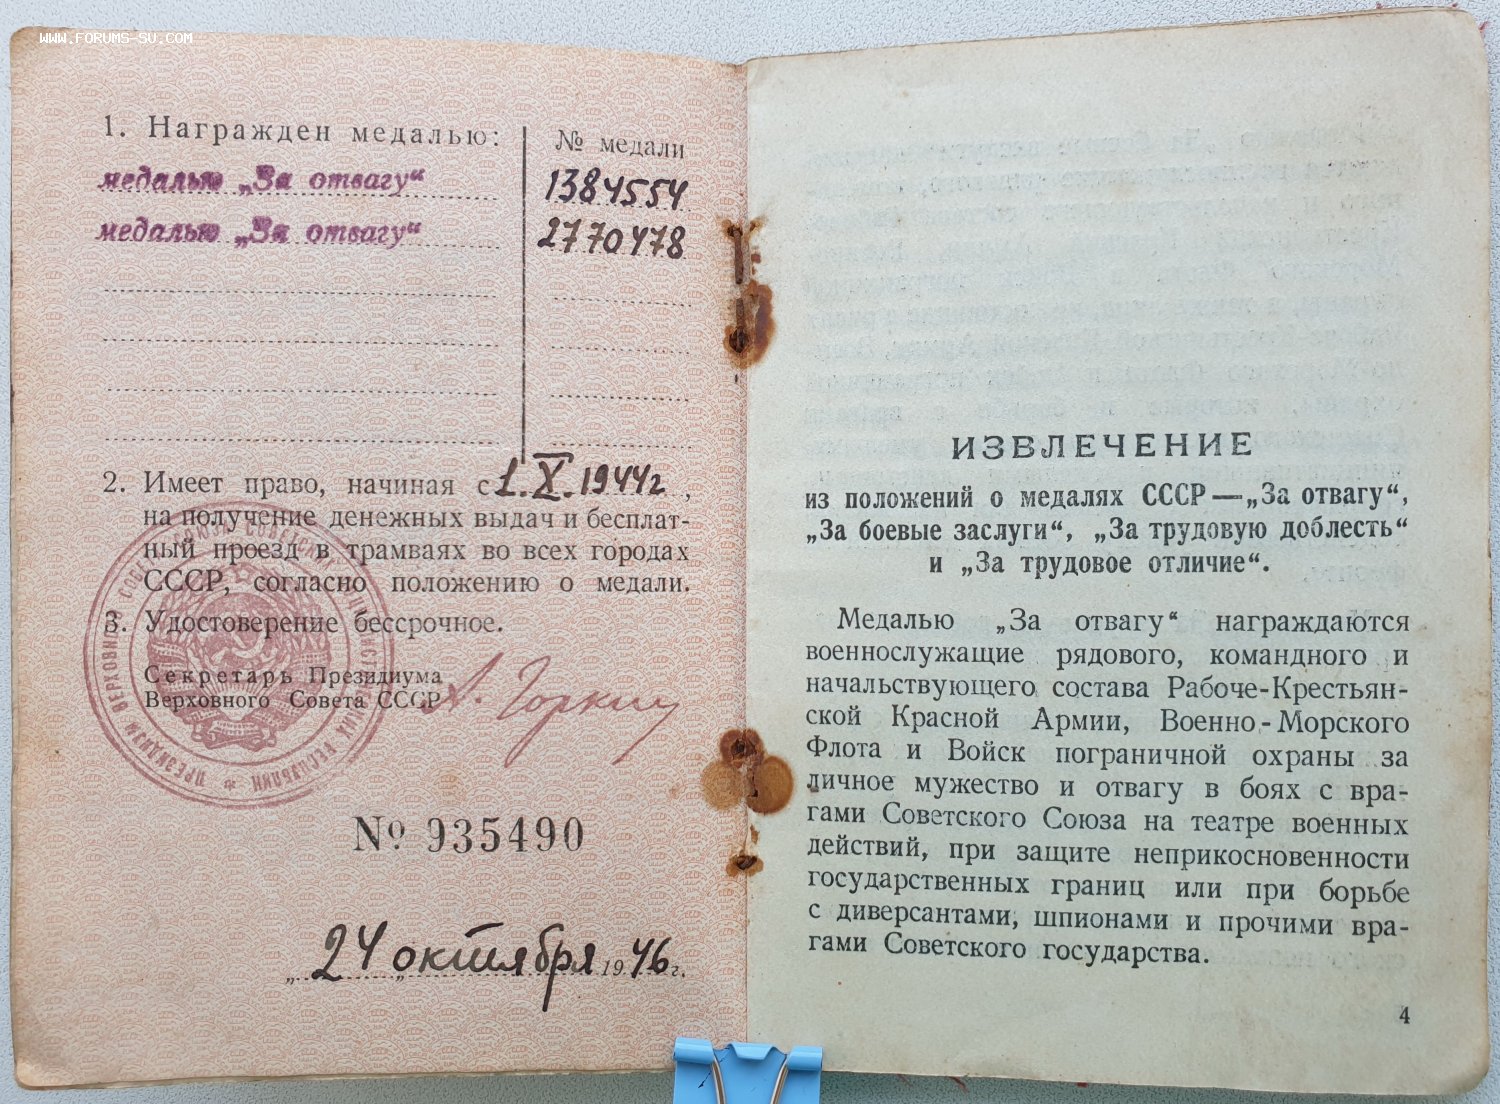 WWW.FORUMS-SU.COM
1. Награжден медалью:
№ медали
медалью „За отвагу“
1384554
медалью „За отвагу“
2770478
2. Имеет право, начиная с 1.X.1944г,
на получение денежных выдач и бесплат-
ный проезд в трамваях во всех городах
СССР, согласно положению о медали.
3. Удостоверение бессрочное.
Секретарь Президиума
Верховного Совета СССР
А. Горкин
№ 935490
„24 „октября 1946г.
ИЗВЛЕЧЕНИЕ
из положений о медалях СССР—„За отвагу“,
„За боевые заслуги“, „За трудовую доблесть“
и „За трудовое отличие“.
Медалью „За отвагу“ награждаются
военнослужащие рядового, командного и
начальствующего состава Рабоче-Крестьян-
ской Красной Армии, Военно-Морского
Флота и Войск пограничной охраны за
личное мужество и отвагу в боях с вра-
гами Советского Союза на театре военных
действий, при защите неприкосновенности
государственных границ или при борьбе
с диверсантами, шпионами и прочими вра-
гами Советского государства.
4